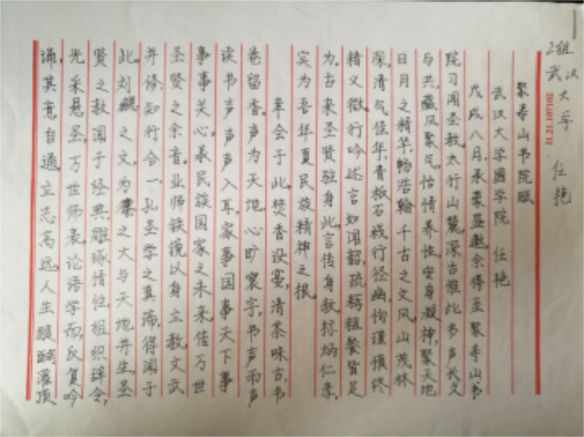 2组
武汉大学 任艳
聚泰山书院赋
武汉大学国学院 任艳
戊戌八月，承蒙显邀余得至聚泰山书
院习闻圣教太行山麓深古雅此书声长久
与共，藏风聚气，怡情养性，安身凝神，聚天地
日月之精华，畅浩翰千古之文风，山茂林
深，清气佳华，青板石栈行径幽，恂谨慎终
精义微，行吟述言如闻韶，疏粝粗餐皆足
为，古来圣贤驻身此，言传身教，炳仁孝，
实为吾华夏民族精神之根。
草会于此，焚香设宴，清茶味古，书
卷留香，声为天地，心旷寰宇，书声雨声
读书声声声入耳，家事国事天下事
事事关心，晨民族国家之未来，信万世
圣贤之余音，业师铁镜以身立教，文武
并修，知行合一，孔圣学之真谛，得闻于
此，刘勰之文，为之大与天地并生，圣
贤之教闻于经典，雕琢情性，组织辞令，
光采悬圣，万世师表，论语学而，反复吟
诵，其意自通，立志高远，人生醍醐灌顶